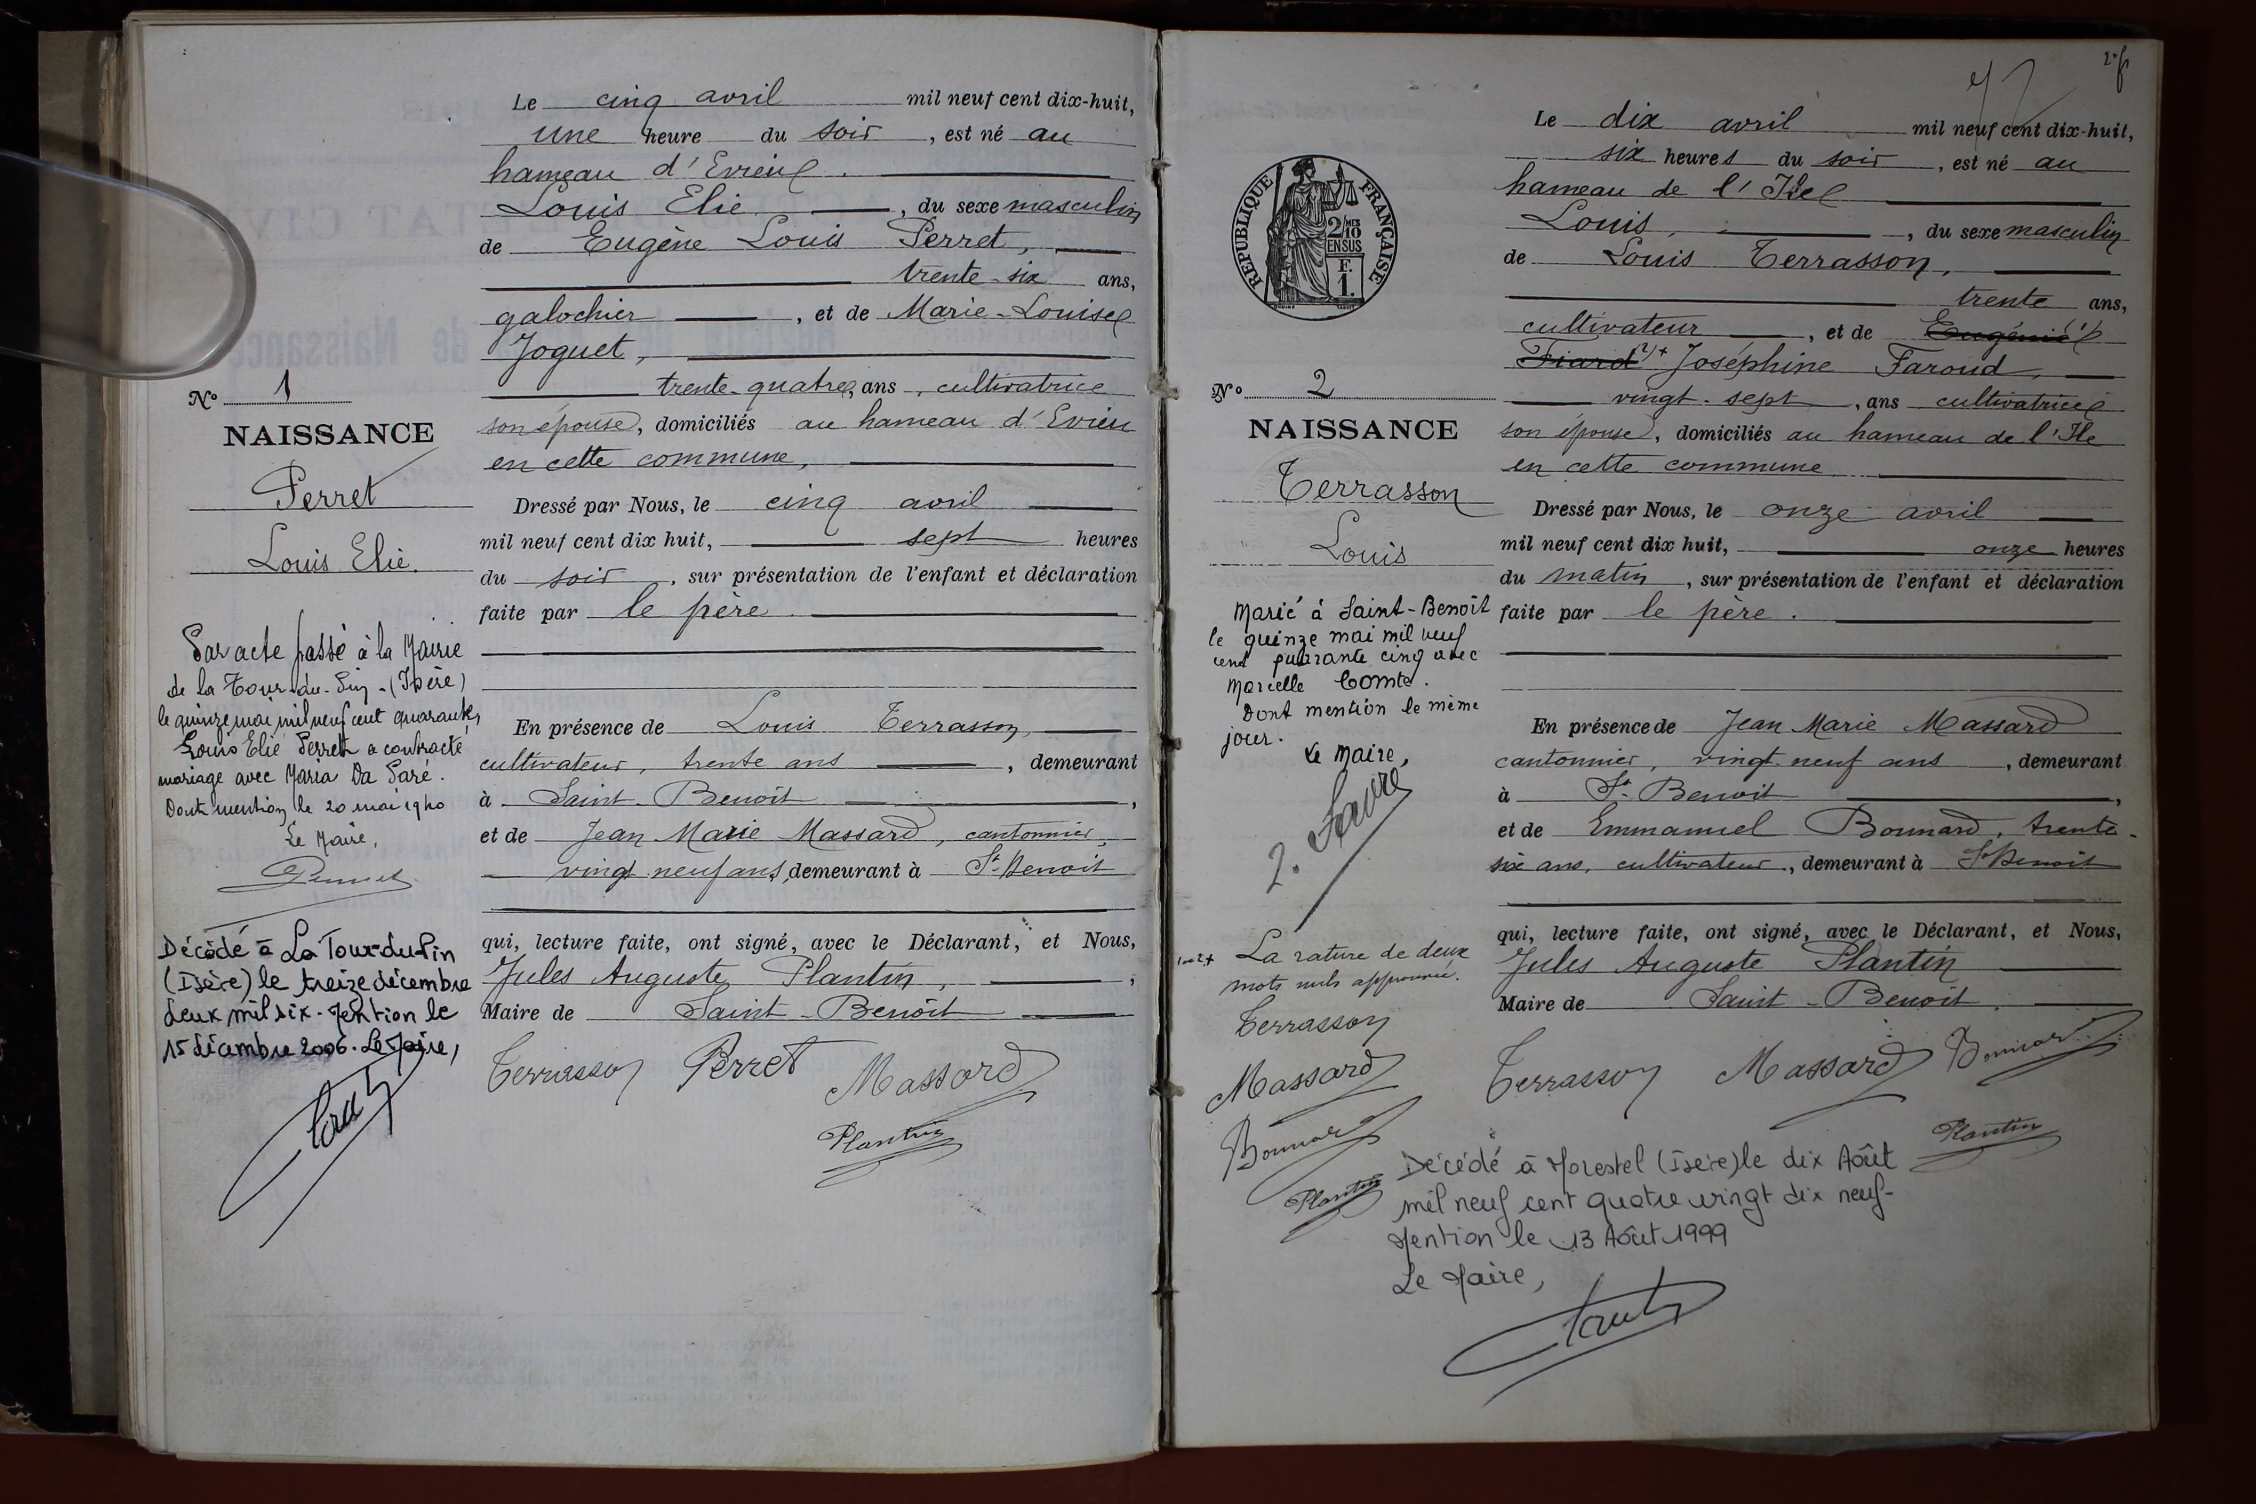 Le cinq avril mil neuf cent dix-huit,
une heure du soir, est né au
hameau d'Evrieu.
Louis Elie, du sexe masculin
de Eugène Louis Perret,
trente-six ans,
galochier, et de Marie-Louise
Joguet,
trente-quatre, ans, cultivatrice
son épouse, domiciliés au hameau d'Evrieu
en cette commune,
Dressé par Nous, le cinq avril
mil neuf cent dix huit, sept heures
du soir, sur présentation de l'enfant et déclaration
faite par le père.
En présence de Louis Terrasson,
cultivateur, trente ans, demeurant
à Saint-Benoit,
et de Jean Marie Massard, cantonnier,
vingt neuf ans, demeurant à St Benoit
qui, lecture faite, ont signé, avec le Déclarant, et Nous,
Jules Auguste Plantin,
Maire de Saint-Benoit
Terrasson Perret Massard
Plantin
No 1
NAISSANCE
Perret
Louis Elie.
Par acte passé à la Mairie
de la Tour-du-Pin-(Isère)
le quinze mai mil neuf cent quarante,
Louis Elie Perret a contracté
mariage avec Maria Da Paré.
Dont mention le 20 mai 1940
Le Maire,
Décédé à La Tour-du-Pin
(Isère) le treize décembre
deux mil six. Mention le
15 décembre 2006. Le Maire,
2 f
Le dix avril mil neuf cent dix-huit,
six heures du soir, est né au
hameau de l'Ile
Louis, du sexe masculin
de Louis Terrasson,
trente ans,
cultivateur, et de Eugénie (1)
Fiard 2)+ Joséphine Faroud,
vingt-sept, ans cultivatrice
son épouse, domiciliés au hameau de l'Ile
en cette commune
Dressé par Nous, le onze avril
mil neuf cent dix huit, onze heures
du matin, sur présentation de l'enfant et déclaration
faite par le père.
En présence de Jean Marie Massard
cantonnier, vingt neuf ans, demeurant
à St Benoit,
et de Emmanuel Bonnard, trente-
six ans, cultivateur, demeurant à St Benoit
qui, lecture faite, ont signé, avec le Déclarant, et Nous,
Jules Auguste Plantin
Maire de Saint-Benoit,
Terrasson Massard Bonnard
Plantin
REPUBLIQUE FRANÇAISE
2/MES 10
EN SUS
F.
1.
No 2
NAISSANCE
Terrasson
Louis
Marié à Saint-Benoît
le quinze mai mil neuf
cent quarante cinq avec
Marcelle Comte.
Dont mention le même
jour.
Le Maire,
La rature de deux
mots nuls approuvée.
Terrasson
Massard
Bonnard
Plantin
Décédé à Morestel (Isère) le dix Août
mil neuf cent quatre vingt dix neuf-
Mention le 13 Août 1999
Le Maire,